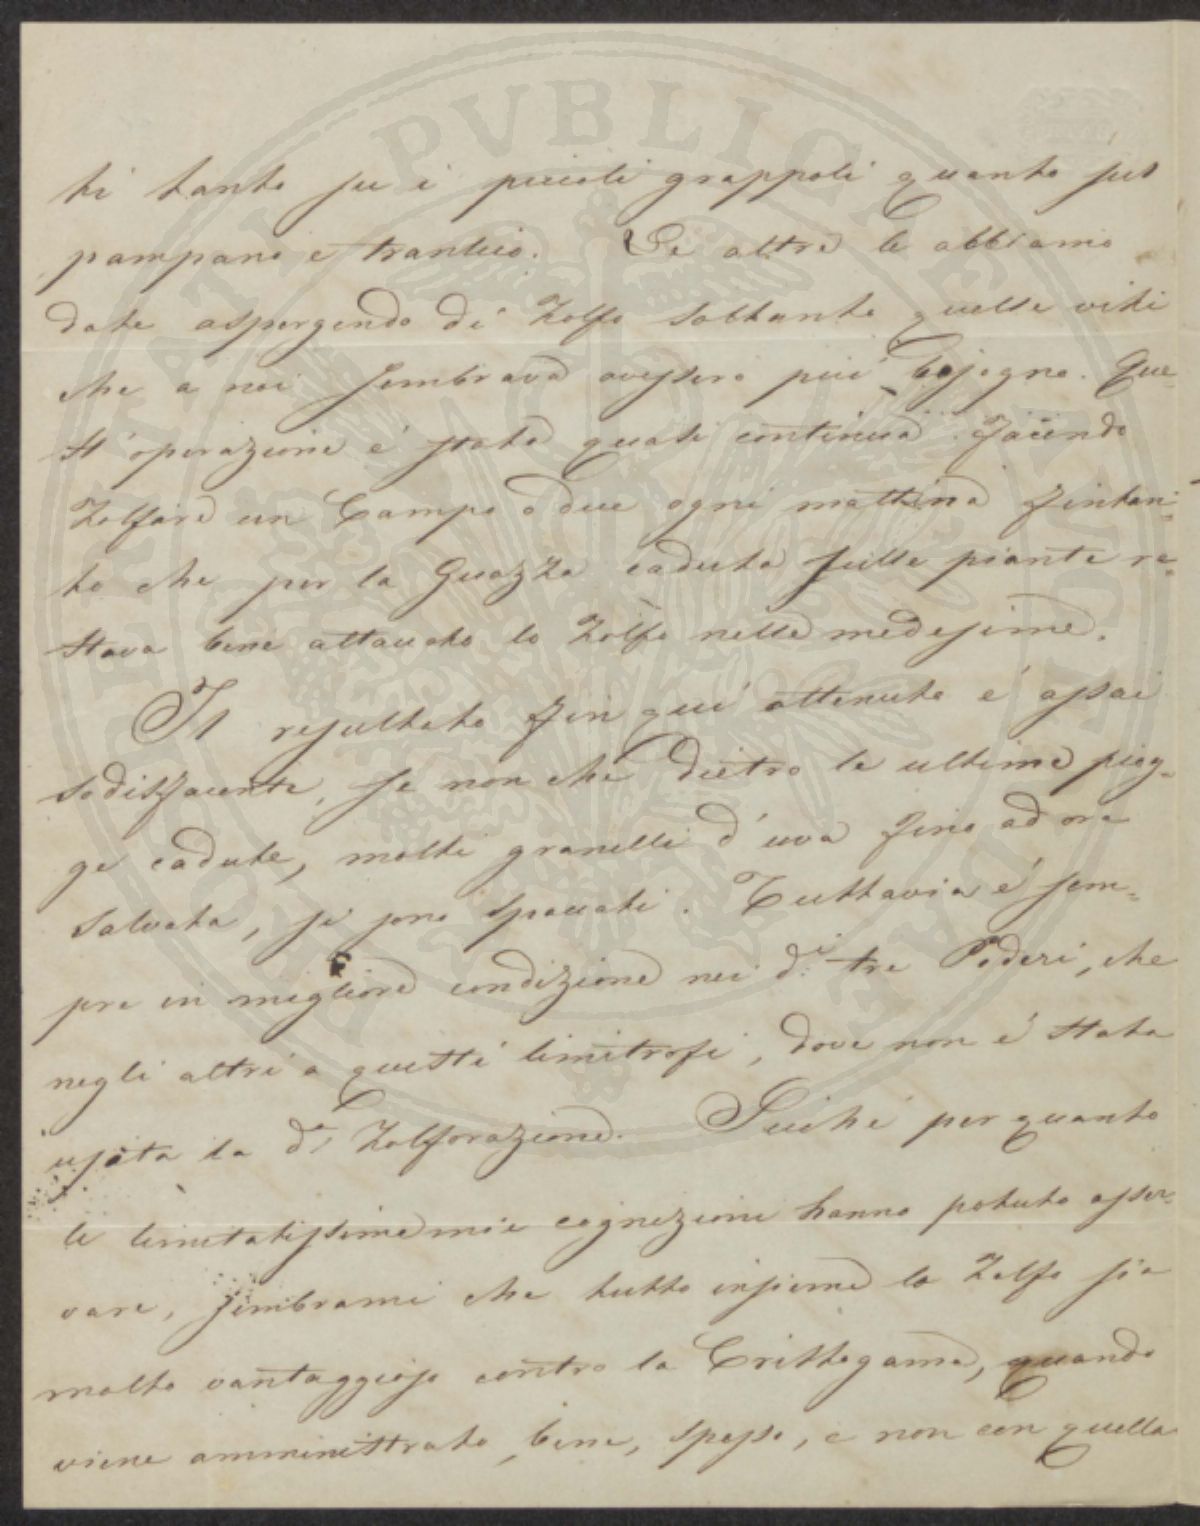 ti tanto su i piccioli grappoli quanto sul
pampano e tralcio. Le altre le abbiamo
date aspergendo di Zolfo soltanto quelle viti
che a noi sembrava avessero più bisogno. Que
st'operazione é stata quasi continua facendo
Zolfare un Campo o due ogni mattina fintan-
to che per la Guazza caduta sulle piante re-
stava bene attaccato lo Zolfo nelle medesime.
Il resultato fin qui ottenuto é assai
sodisfacente, se non che dietro le ultime piog-
ge cadute, molti granelli d'uva fino ad ora
salvata, si sono spaccati. Tuttavia é sem-
pre in migliore condizione nei d.i tre Poderi, che
negli altri a questi limitrofi, dove non é stata
usata la d.a Zolforazione. Sicché per quanto
le limitatissime mie cognizioni hanno potuto osser-
vare, sembrami che tutto insieme lo Zolfo sia
molto vantaggioso contro la Crittogama, quando
viene amministrato bene, spesso, e non con quella